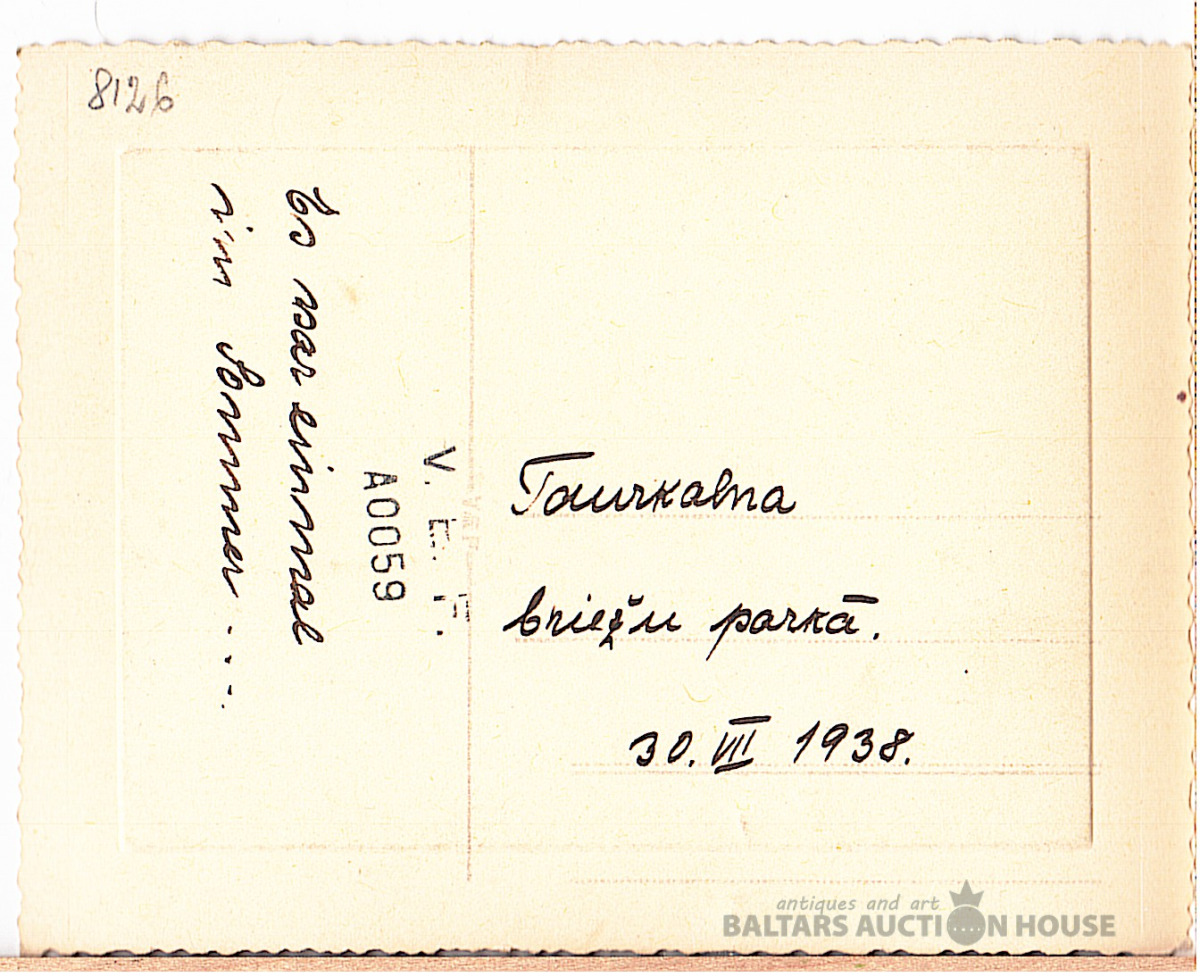 8126
Es war einmal
im Sommer ....
V. E. F.
A0059
Taurkalna
briežu parkā.
30. VII 1938.
antiques and art
BALTARS AUCTION HOUSE